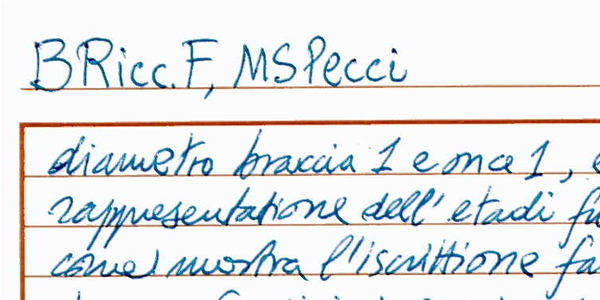 B Ricc. F, MS Pecci
diametro braccia 1 e once 1,
rappresentatione dell'etadi fu
come mostra l'iscrittione fa